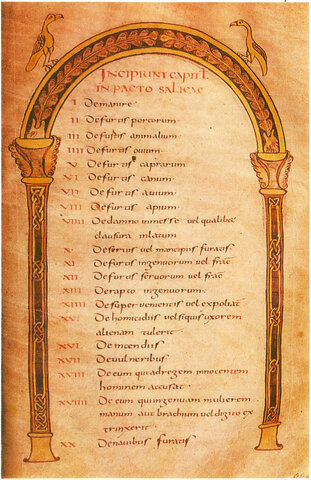 INCIPIUNT CAPITŁ
IN PACTO SALICAE
I De manire
II De furtis porcorum
III De furtis animalium
IIII De furtis ovium
V De furtis caprarum
VI De furtis canum
VII De furtis avium
VIII De furtis apium
VIIII De damno in messe vel qualibet
clausura inlatum
X De servis vel mancipiis furatis
XI De furtis ingenuorum vel frac
XII De furtis servorum vel frac
XIII De rapto ingenuorum
XIIII De superventis vel expoliat
XV De homicidiis vel si quis uxorem
alienam tulerit
XVI De incendiis
XVII De vulneribus
XVIII De eum qui ad regem innocentem
hominem accusat
XVIIII De eum qui ingenuam mulierem
manum aut brachium vel digito ex
trinxerit
XX De navibus furatis